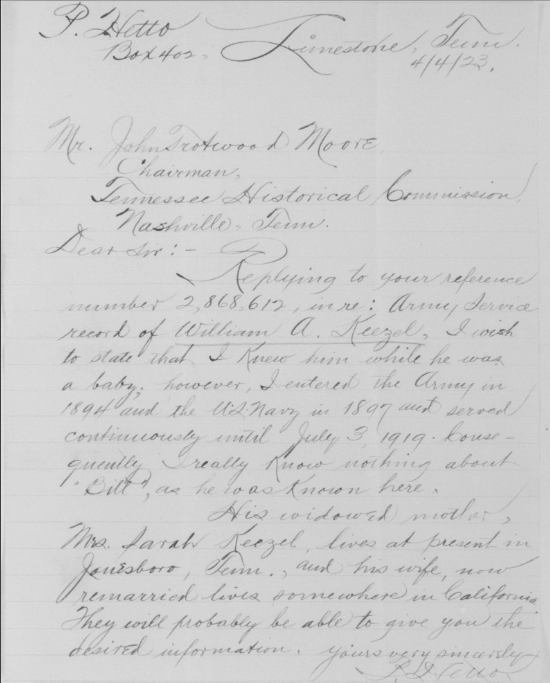 P. Hetto
Box 402, Limestone, Tenn.
4/4/23.
Mr. John Trotwood Moore,
Chairman,
Tennessee Historical Commission,
Nashville, Tenn.
Dear Sir:-
Replying to your reference
number 2,868,612, in re: Army Service
record of William A. Keezel, I wish
to state that I knew him while he was
a baby; however, I entered the Army in
1894 and the U.S. Navy in 1897 and served
continuously until July 3, 1919. Conse-
quently I really know nothing about
"Bill", as he was known here.
His widowed mother,
Mrs. Sarah Keezel, lives at present in
Jonesboro, Tenn., and his wife, now
remarried lives somewhere in California.
They will probably be able to give you the
desired information. Yours very sincerely
P. Hetto